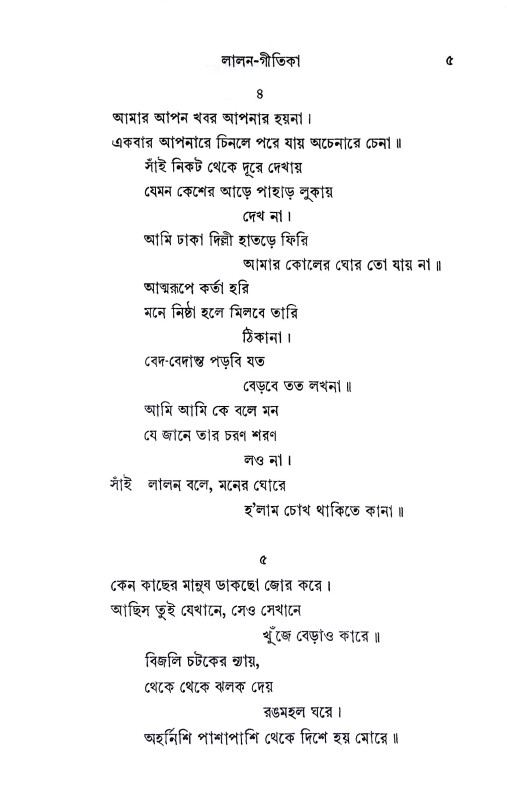 লালন-গীতিকা ৫
৪
আমার আপন খবর আপনার হয়না।
একবার আপনারে চিনলে পরে যায় অচেনারে চেনা॥
সাঁই নিকট থেকে দূরে দেখায়
যেমন কেশের আড়ে পাহাড় লুকায়
দেখ না।
আমি ঢাকা দিল্লী হাতড়ে ফিরি
আমার কোলের ঘোর তো যায় না॥
আত্মরূপে কর্তা হরি
মনে নিষ্ঠা হলে মিলবে তারি
ঠিকানা।
বেদ-বেদান্ত পড়বি যত
বেড়বে তত লখনা॥
আমি আমি কে বলে মন
যে জানে তার চরণ শরণ
লও না।
সাঁই লালন বলে, মনের ঘোরে
হ'লাম চোখ থাকিতে কানা॥
৫
কেন কাছের মানুষ ডাকছো জোর করে।
আছিস তুই যেখানে, সেও সেখানে
খুঁজে বেড়াও কারে॥
বিজলি চটকের ন্যায়,
থেকে থেকে ঝলক দেয়
রঙমহল ঘরে।
অহর্নিশি পাশাপাশি থেকে দিশে হয় মোরে॥